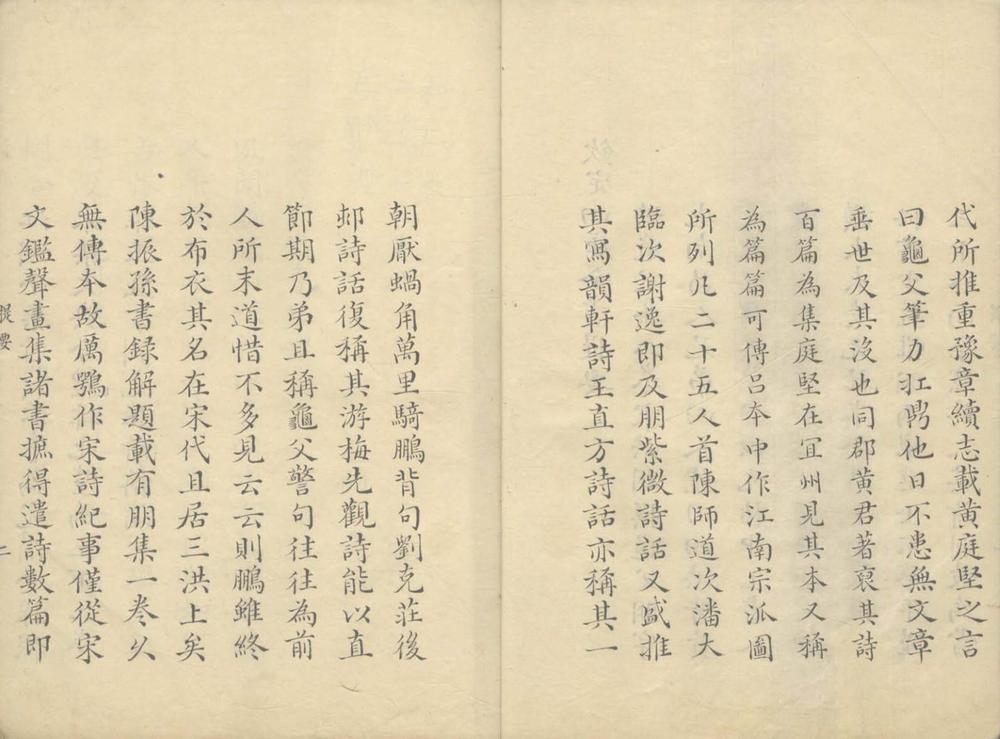 代所推重豫章續志載黄庭堅之言
曰龜父筆力扛鼎他日不患無文章
垂世及其没也同郡黄君著裒其詩
百篇為集庭堅在冝州見其本又稱
為篇篇可傳吕本中作江南宗派圖
所列凡二十五人首陳師道次潘大
臨次謝逸即及朋紫微詩話又盛推
其寫韻軒詩王直方詩話亦稱其一
朝厭蝸角萬里騎鵬背句劉克莊後
邨詩話復稱其游梅先觀詩能以直
節期乃弟且稱龜父警句往往為前
人所未道惜不多見云云則鵬雖終
於布衣其名在宋代且居三洪上矣
陳振孫書録解題載有朋集一巻久
無傳本故厲鶚作宋詩紀事僅從宋
文鑑聲畫集諸書摭得遺詩數篇即
提要
二